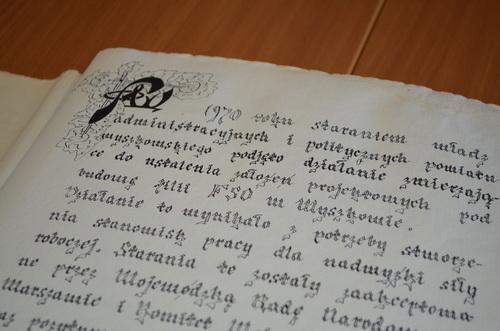 W 1970 roku staraniem władz
administracyjnych i politycznych powiatu
myszkowskiego podjęto działanie zmierzają-
ce do ustalenia założeń projektowych pod
budowę filii FSO w Myszkowie.
Działanie to wynikało z potrzeby stworze-
nia stanowisk pracy dla nadwyżki siły
roboczej. Starania te zostały zaakceptowa
ne przez Wojewódzką Radę Narodow
Warszawie i Komitet